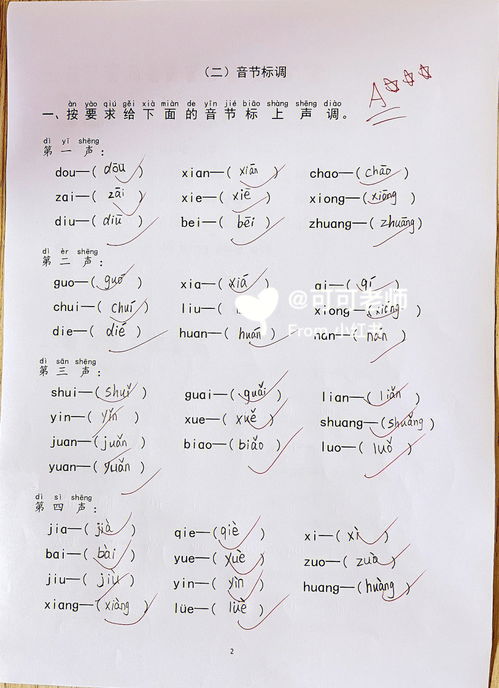 （二）音节标调
A
àn yào qiú gěi xià miàn de yīn jié biāo shàng shēng diào
一、按要求给下面的音节标上声调。
dì yī shēng
第一声：
dou—( dōu ) xian—( xiān ) chao—( chāo )
zai—( zāi ) xie—( xiē ) xiong—( xiōng )
diu—( diū ) bei—( bēi ) zhuang—( zhuāng )
dì èr shēng
第二声：
guo—( guó ) xia—( xiá ) qi—( qí )
chui—( chuí ) liu—( ) xiong—( xióng )
die—( dié ) huan—( huán ) nan—( nán )
@可可老师
From 小红书
dì sān shēng
第三声：
shui—( shuǐ ) guai—( guǎi ) lian—( liǎn )
yin—( yǐn ) xue—( xuě ) shuang—( shuǎng )
juan—( juǎn ) biao—( biǎo ) luo—( luǒ )
yuan—( yuǎn )
dì sì shēng
第四声：
jia—( jià ) qie—( qiè ) xi—( xì )
bai—( bài ) yue—( yuè ) zuo—( zuò )
jiu—( jiù ) yin—( yìn ) huang—( huàng )
xiang—( xiàng ) lüe—( lüè )
2